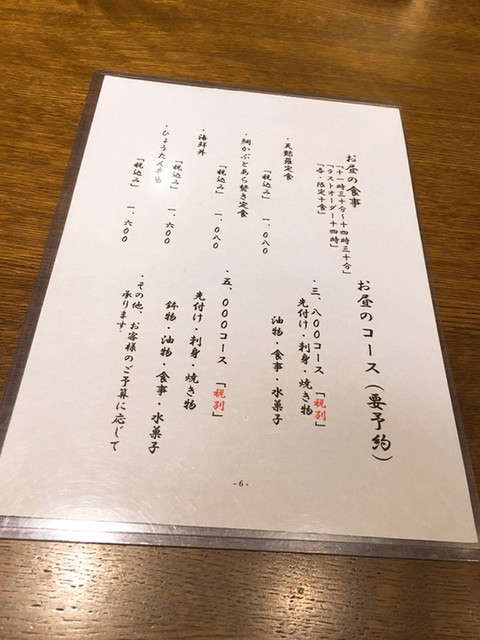 お昼の食事
「十一時三十分〜十四時三十分」
「ラストオーダー十四時」
「各・限定十食」
・天麩羅定食
「税込み」 一、〇八〇
・鯛かぶとあら焚き定食
「税込み」 一、〇八〇
・海鮮丼
「税込み」 一、六〇〇
・ひょうたん弁当
「税込み」 一、六〇〇
お昼のコース(要予約)
・三、八〇〇コース 「税別」
先付け・刺身・焼き物
油物・食事・水菓子
・五、〇〇〇コース 「税別」
先付け・刺身・焼き物
鉢物・油物・食事・水菓子
・その他、お客様のご予算に応じて
承ります。
- 6 -